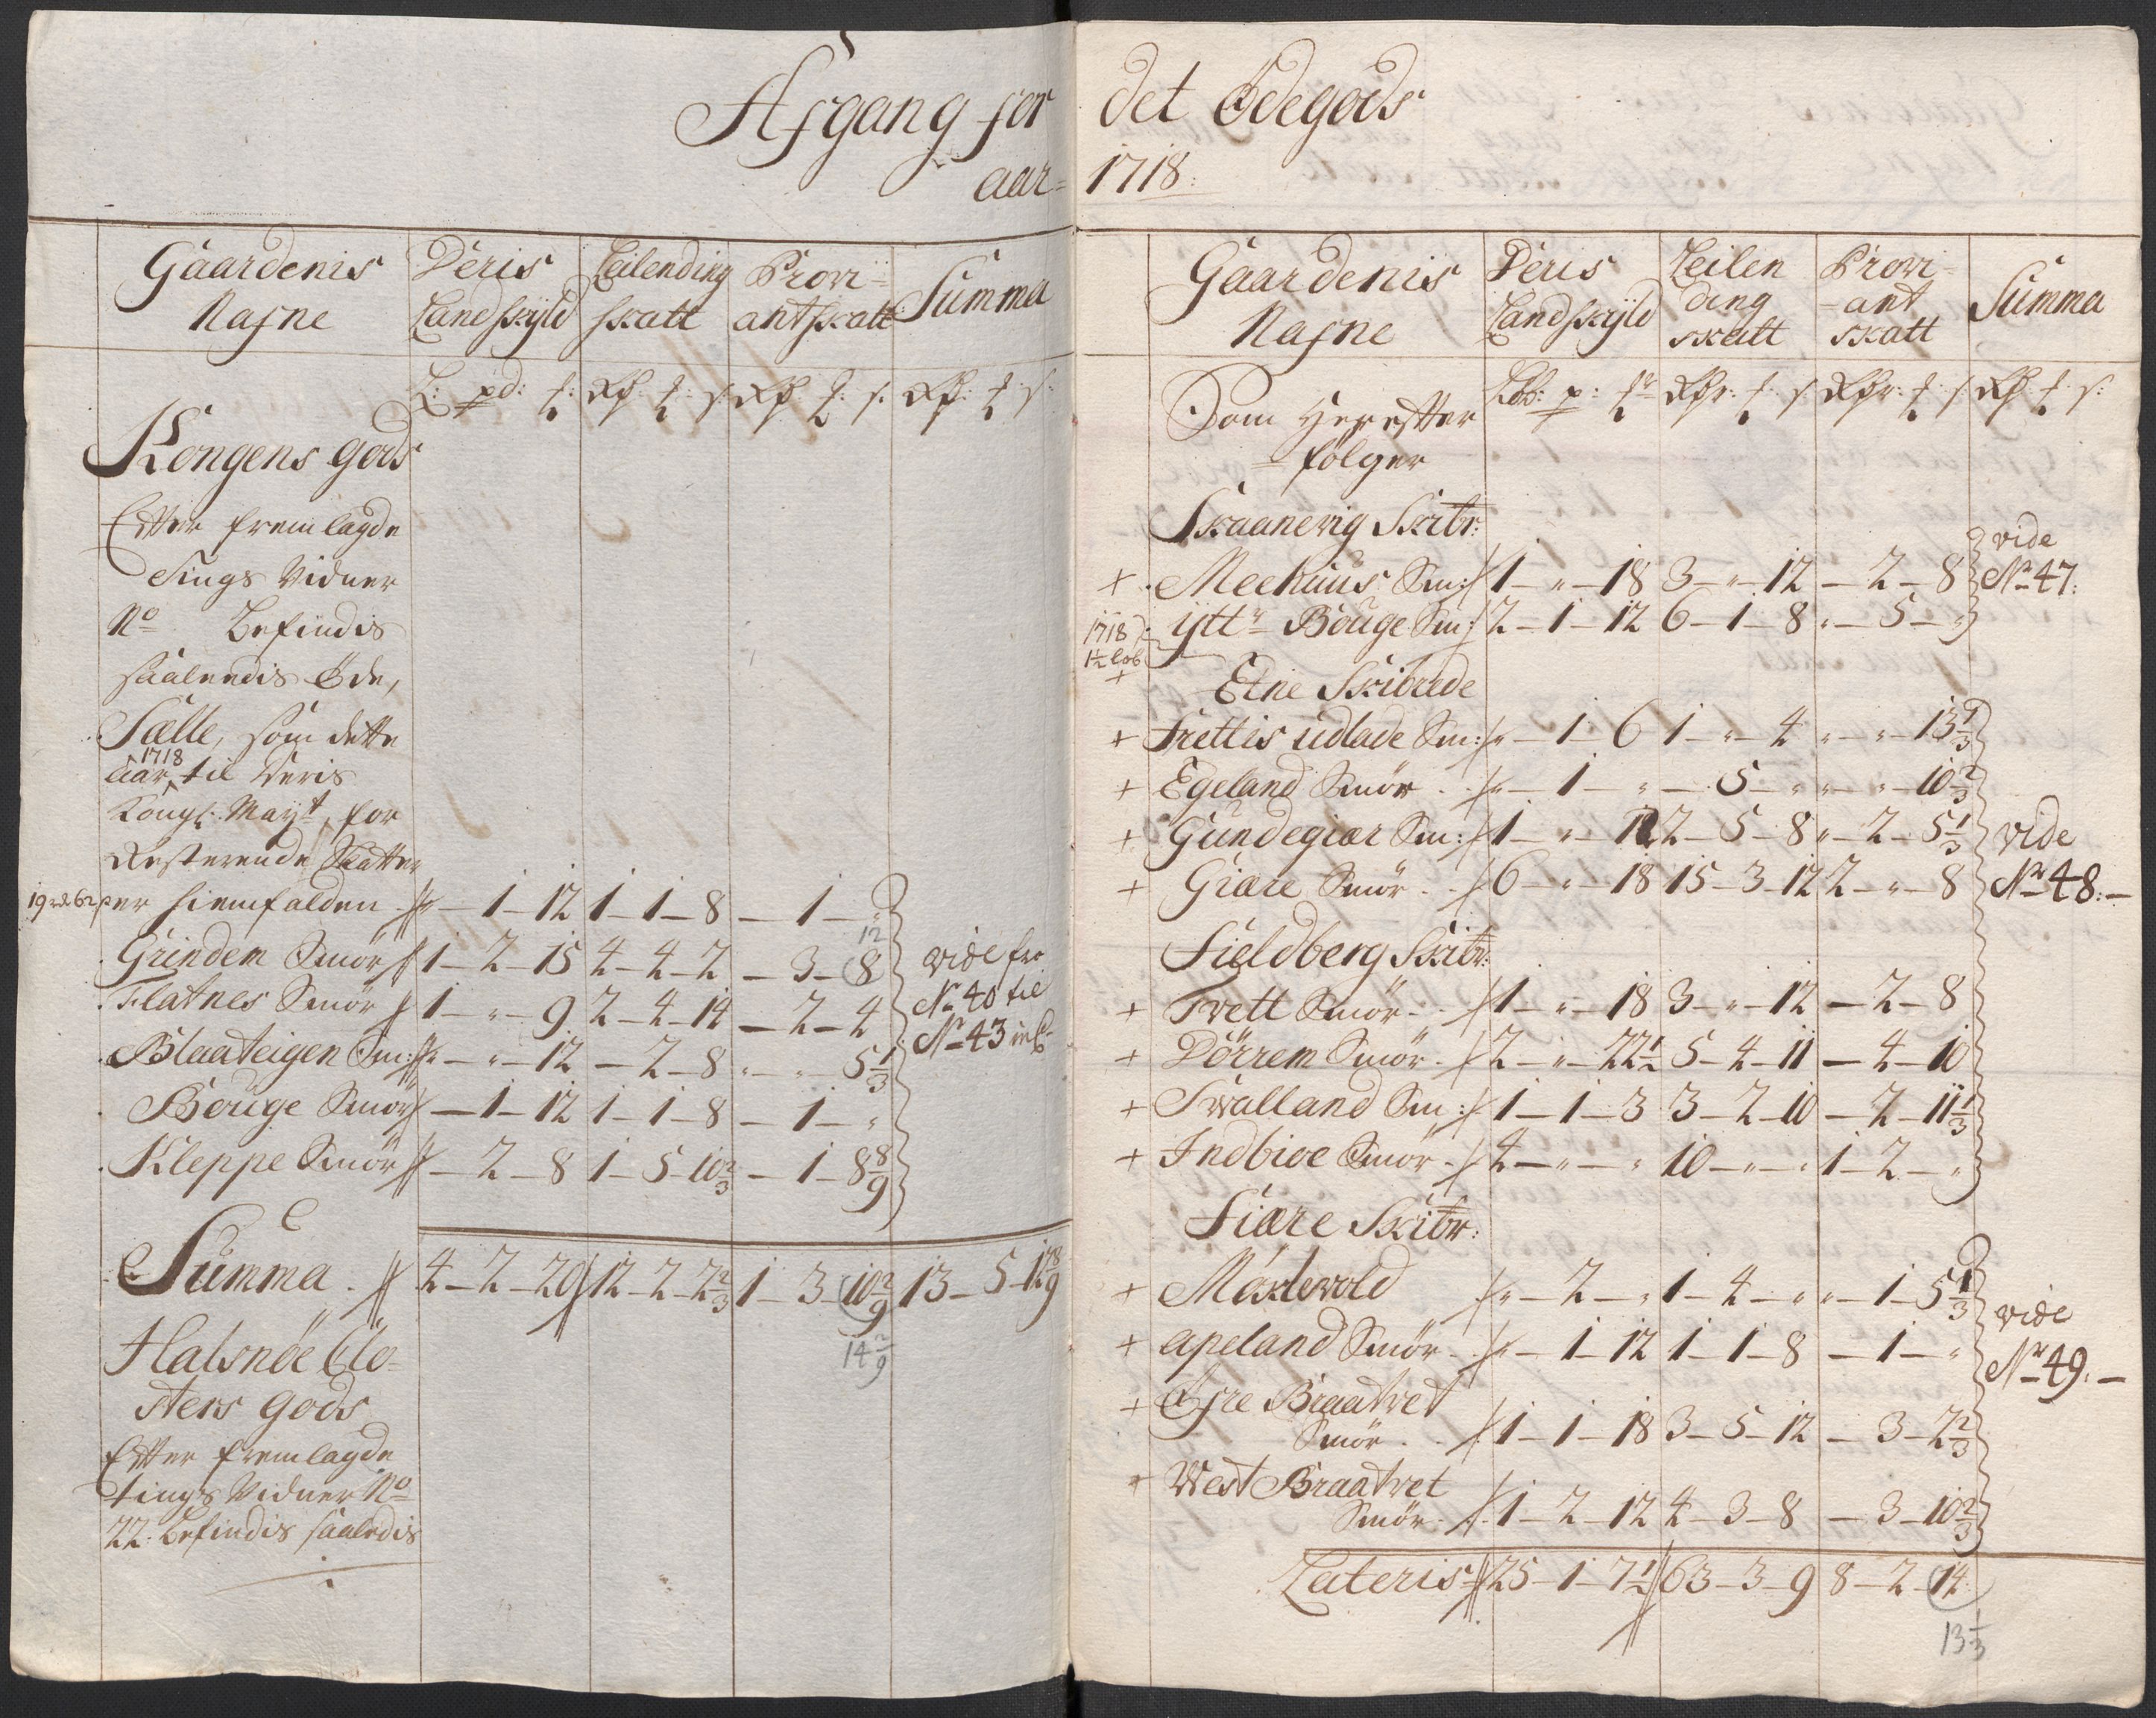 Afgang for det Ödegods
aar= 1718:
Gaardenis Nafne | Deris Landskÿld | Leilending skatt | Provi=antskatt | Summa
L: pd: | Rd | Rd | Rd
Kongens gods
Efter fremlagde
Tings Vidner
No Befindis
saaledis Öde,
Sælle, som dette
1718
aar til Deris
Kongl: Mayt, for
Resterende Skatter
er hiemfalden - „ - 1 - 12 | 1 - 1 - 8 | - 1 - „
12
Grindem Smör 1 - 2 - 15 | 4 - 4 - 2 | - 3 - 8
Flatnes Smör 1 - „ - 9 | 2 - 4 - 14 | - 2 - 4
Blaateigen Sm: „ - „ - 12 | - 2 - 8 | „ - „ 5 1/3
Bouge Smör - 1 - 12 | 1 - 1 - 8 | - 1 - „
Kleppe Smör - 2 - 8 | 1 - 5 - 10 2/3 | - 1 - 8 8/9
vide fra
No 40 til
No 43 incl
Summa 4 - 2 - 20 | 12 - 2 - 2 2/3 | 1 - 3 - 10 2/9 | 13 - 5 - 12 8/9
14 2/9
Halsnöe Clo-
sters gods
Efter fremlagde
tings Vidner No
22. Befindis saaledis
Gaardenis Nafne | Deris Landskÿld | Leilen ding skatt | Provi=ant skatt | Summa
Som Herefter
fölger
Skaanevig Skibr:
+ Meehuus Sm: 1 - „ - 18 | 3 - „ - 12 | - 2 - 8
1718 ÿttr Bouge Sm: 2 - 1 - 12 | 6 - 1 - 8 | „ - 5 - „
1½ lob
+
vide
No 47:
Etne Skibrede
+ Frettis udlade Sm: „ - 1 - 6 | 1 - „ - 4 | „ - „ - 13 1/3
+ Egeland Smör „ - 1 - „ | - 5 - „ | „ - „ 10 2/3
+ Gundegiar Sm: 1 - „ - 12 | 2 - 5 - 8 | „ - 2 - 5 1/3
+ Giære Smör 6 - „ - 18 | 15 - 3 - 12 | 2 - „ - 8
vide
No 48: -
Fieldberg Skibr:
+ Tvett Smör 1 - „ - 18 | 3 - „ - 12 | - 2 - 8
+ Dörrem Smör 2 - „ - 22½ | 5 - 4 - 11 | - 4 - 10
+ Tvalland Sm: 1 - 1 - 3 | 3 - 2 - 10 | - 2 - 11 1/3
+ Indbioe Smör 4 - „ - „ | 10 - „ - „ | 1 - 2 - „
Fiære Skibr:
+ Möxlevold „ - 2 - „ | 1 - 4 - „ | „ - 1 - 5 1/3
+ apeland Smör „ - 1 - 12 | 1 - 1 - 8 | - 1 - „
+ Öfre Braatvet
Smör 1 - 1 - 18 | 3 - 5 - 12 | - 3 - 2 2/3
+ West Braatvet
Smör 1 - 2 - 12 | 4 - 3 - 8 | - 3 - 10 2/3
vide
No 49: -
Lateris 25 - 1 - 7½ | 63 - 3 - 9 | 8 - 2 - 14
13 1/3